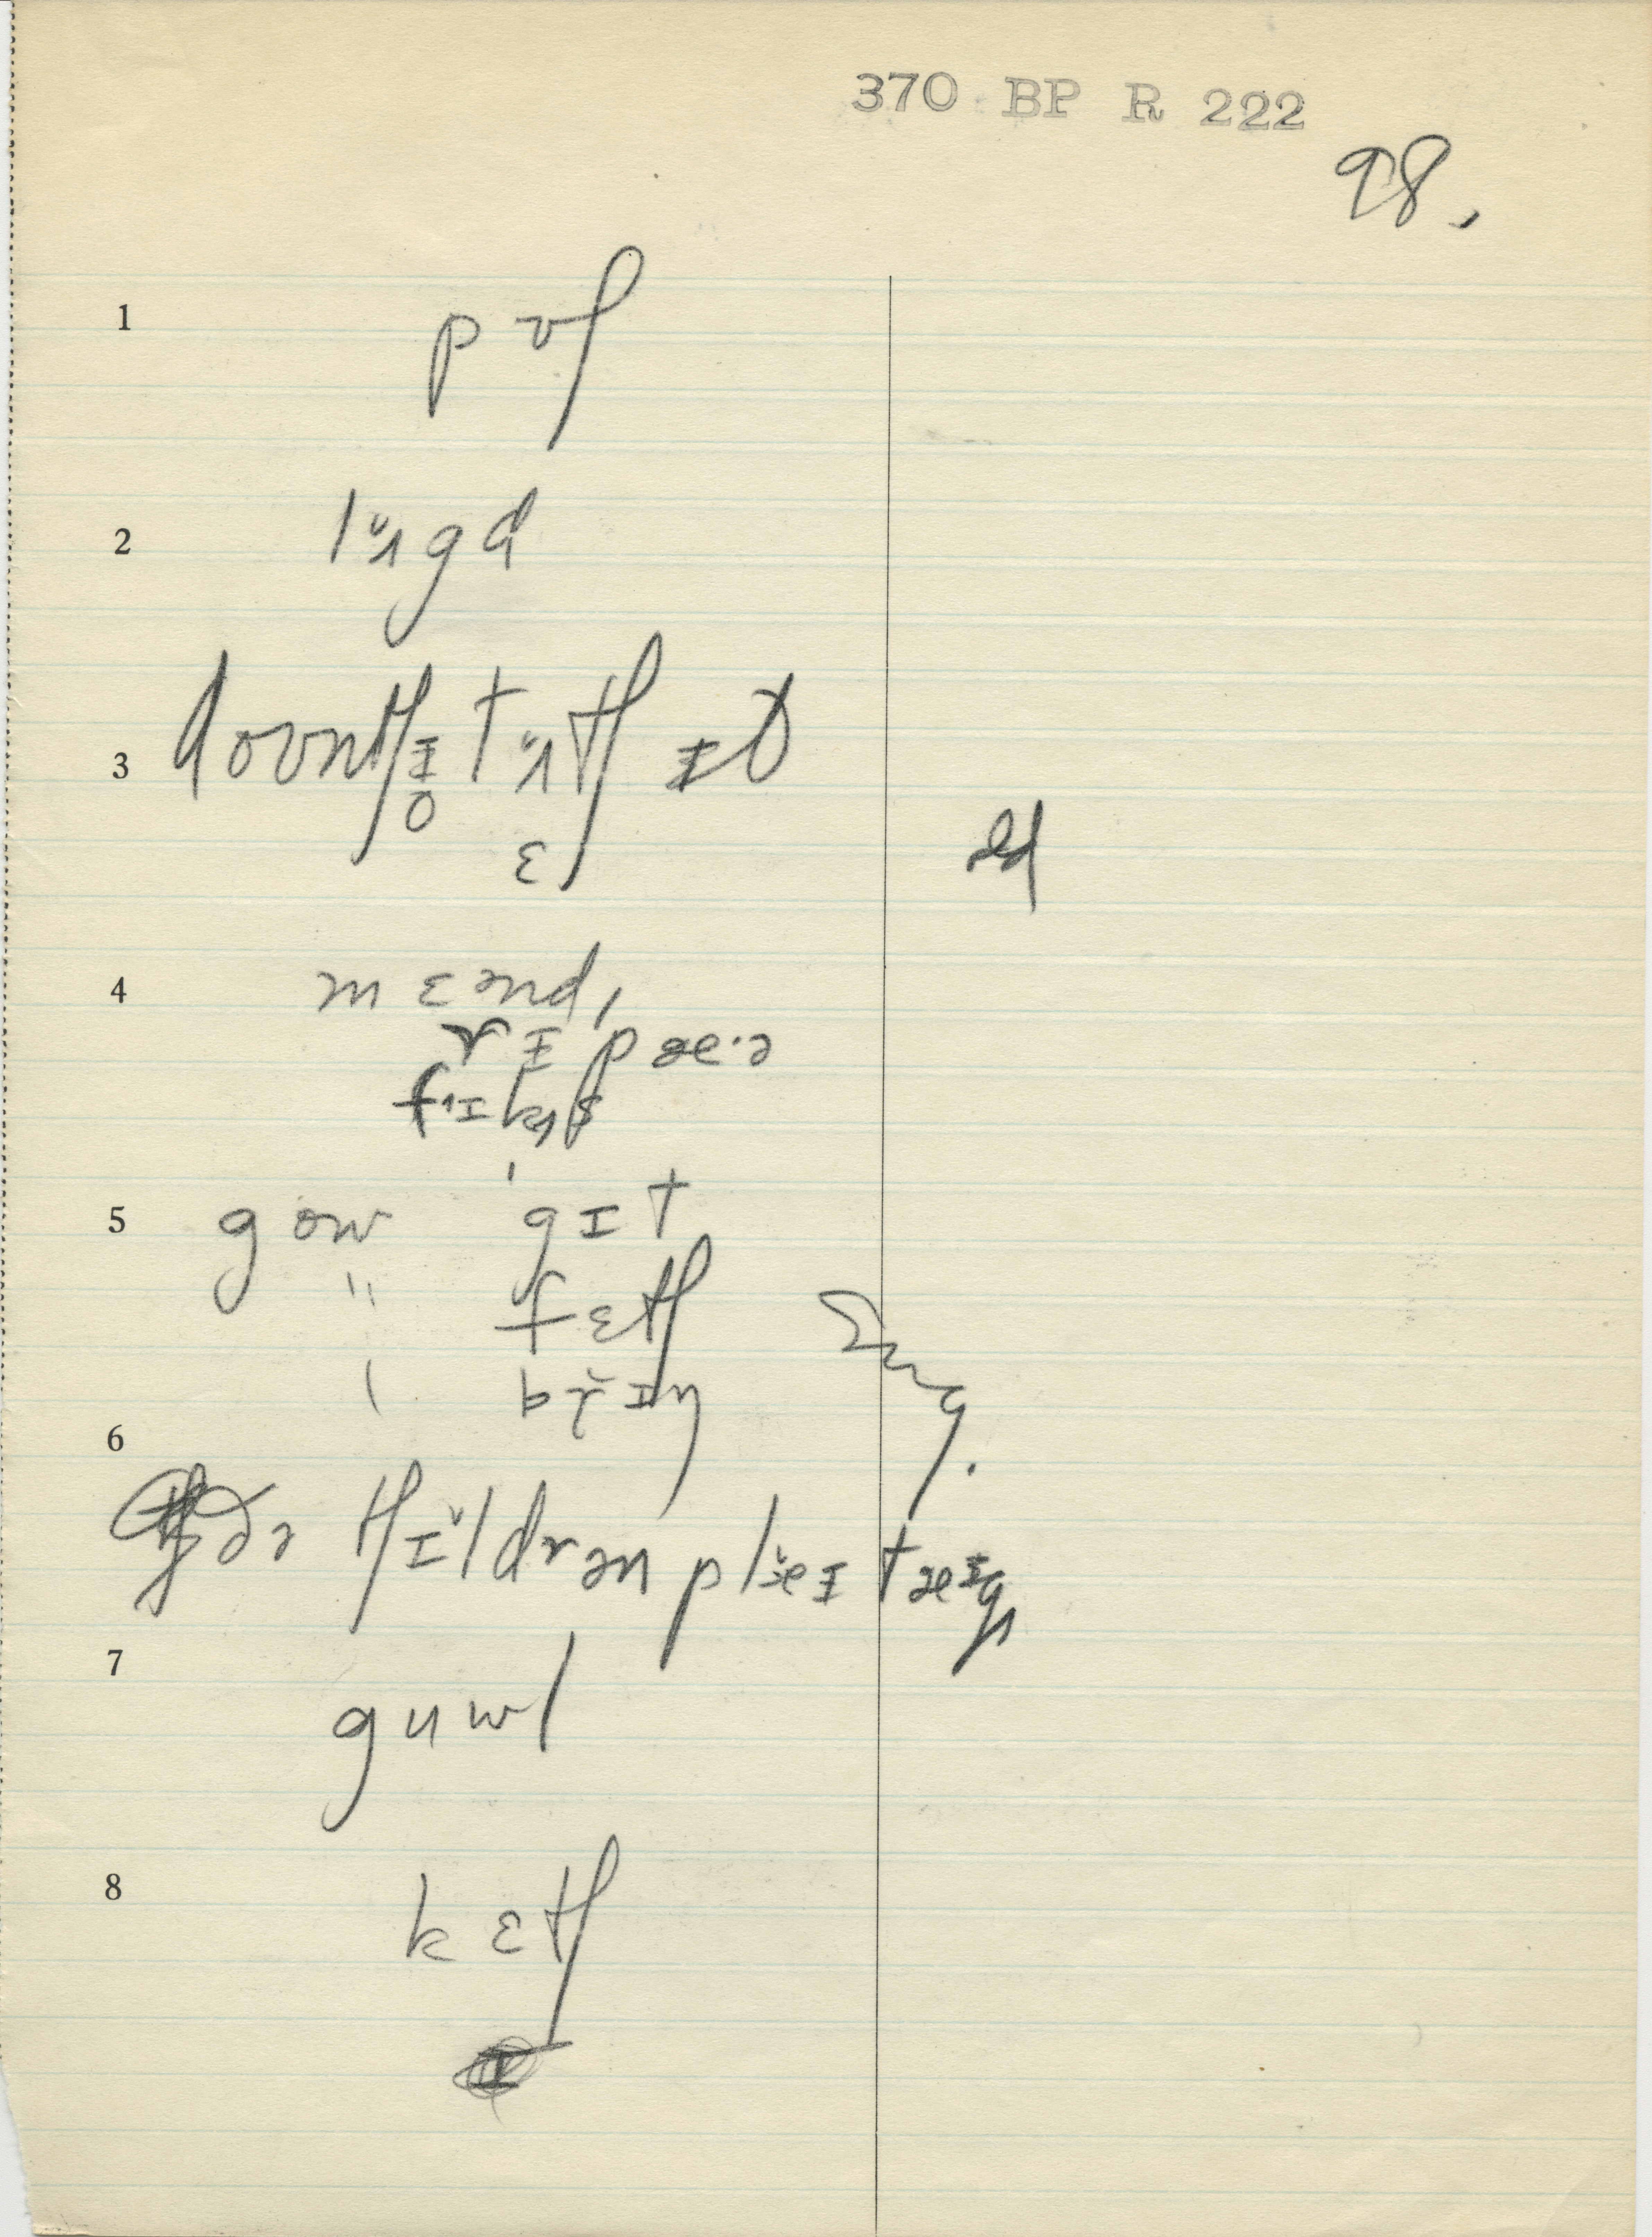 370 BP R 222
98.
1 pʊʃ
2 lʌ̌gd
3 dovntʃɪ tʌ̌tʃ ɪt
o
ɛ
dd
4 mɛənd,
rɪpæ·ə
fɪks
5 gow gɪt
" fɛtʃ
\ brɪ̌ŋ
Sug.
6
ðə tʃɪ̌ldrən plæ̌ɪ tæɪg
7 guwl
8 kɛtʃ